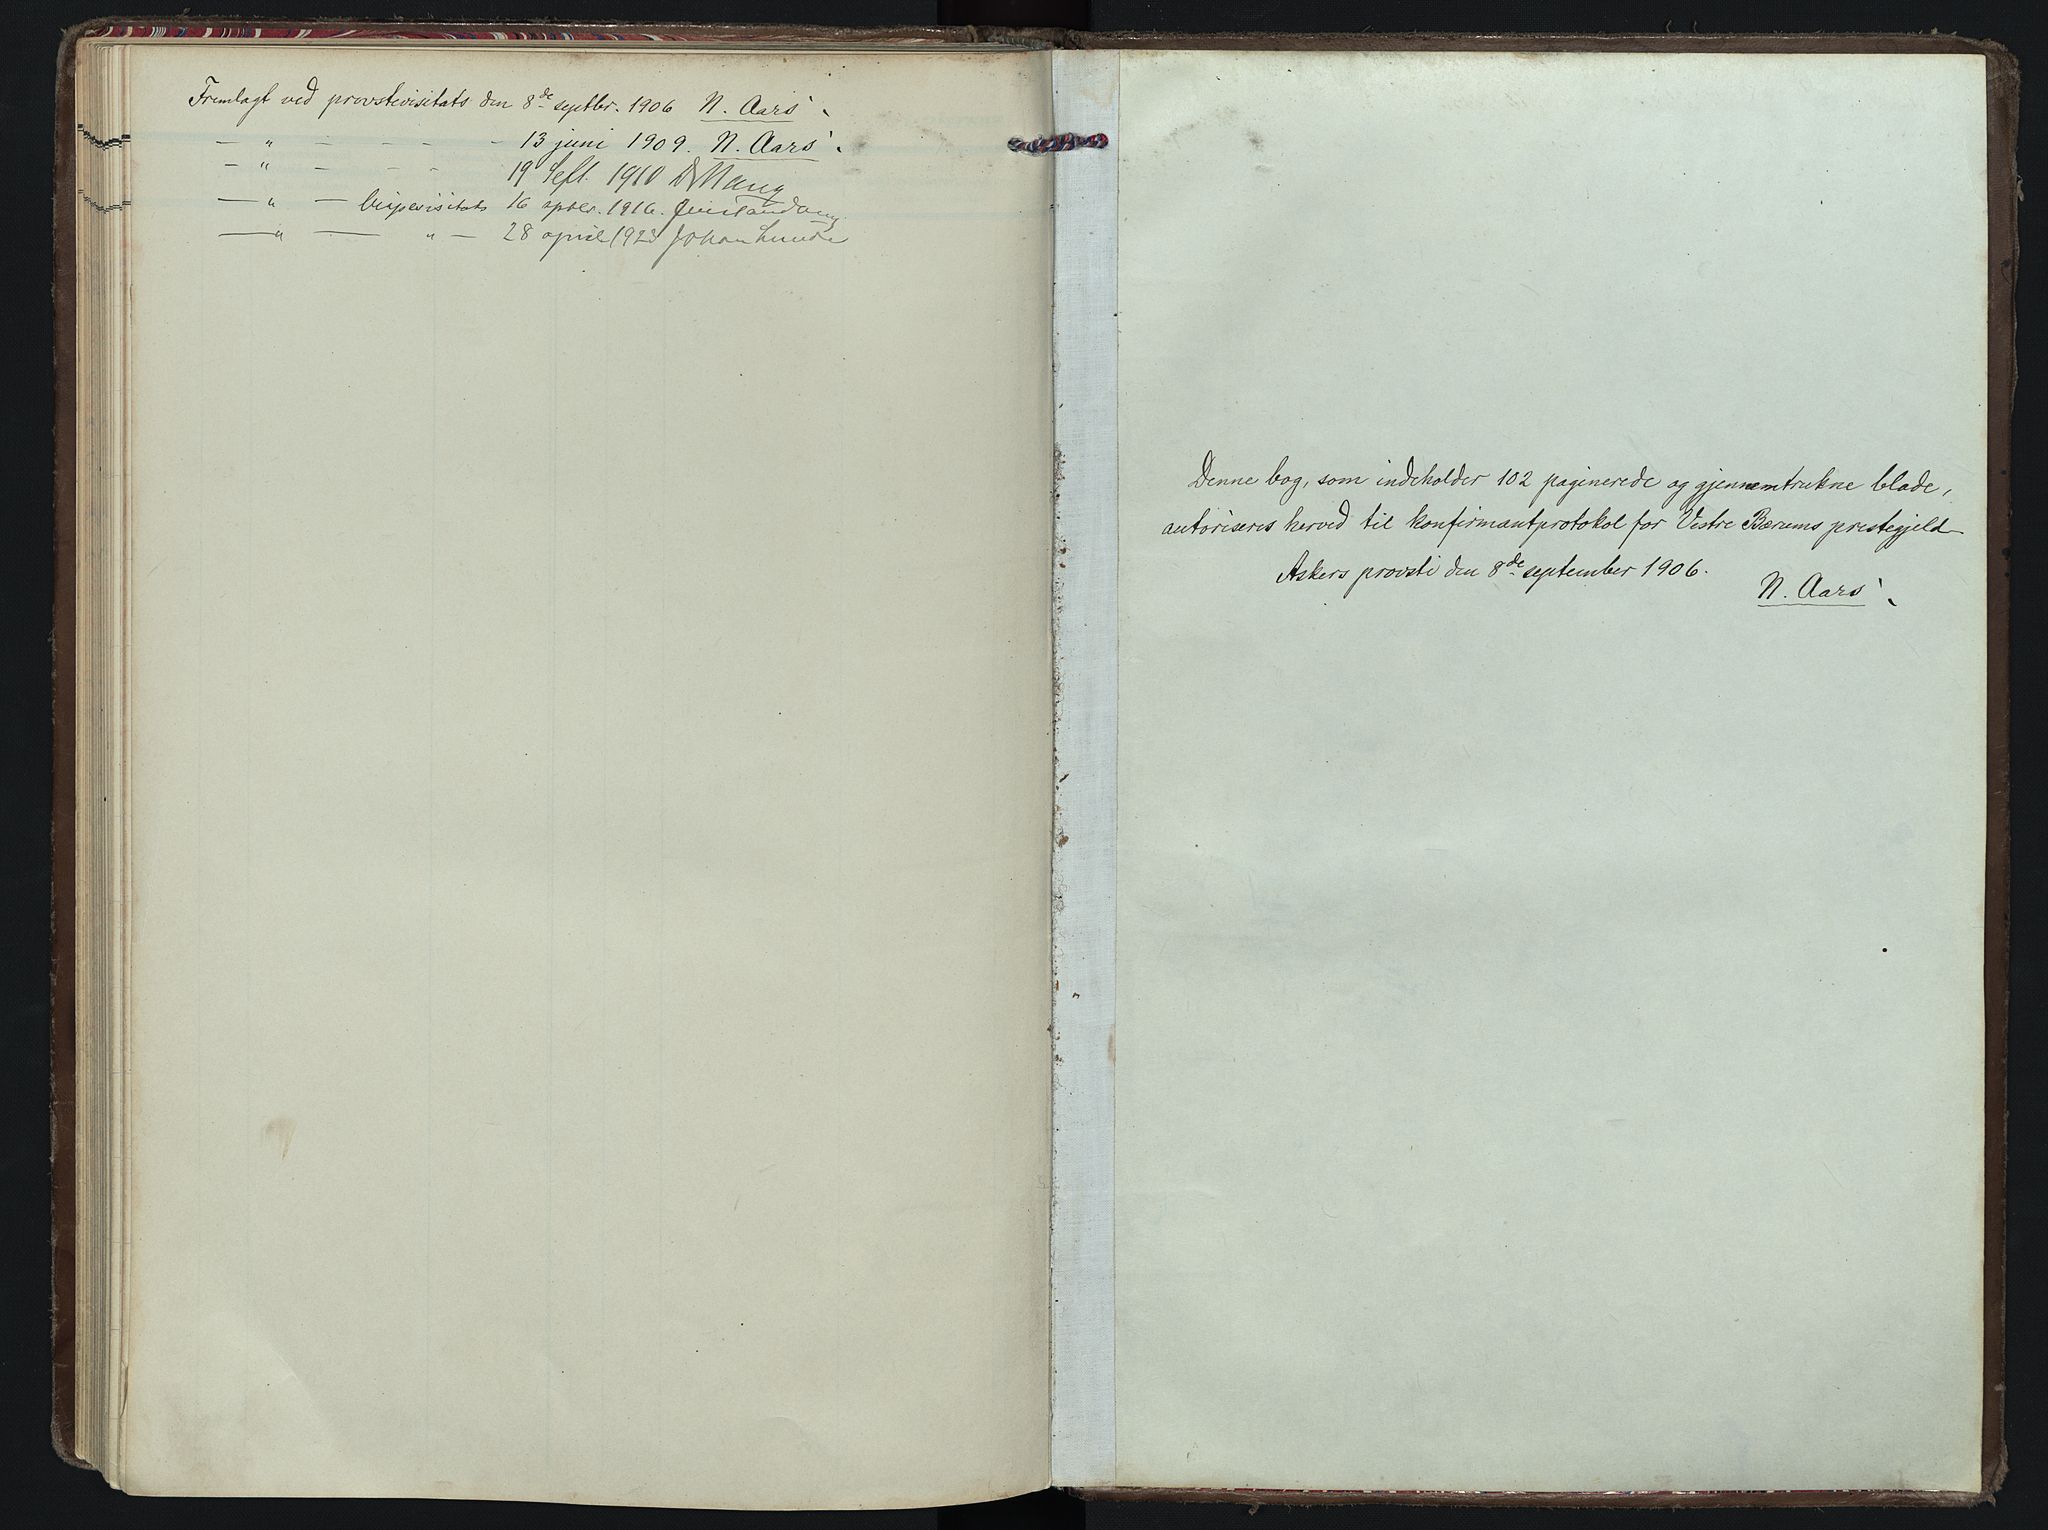 Fremlagt ved provstevisitats den 8de septbr. 1906 N. Aars.
— " — - - - 13 juni 1909. N. Aars.
— " — - - 19 Sept. 1910
— " — bispevisitats 16 septbr. 1916.
— " — " — 28 april 1923 Johan Lunde
Denne bog, som indeholder 102 paginerede og gjennemtrukne blade,
autoriseres herved til konfirmantprotokol for Vestre Bærums prestegjeld
Askers provsti den 8de september 1906.
N. Aars.